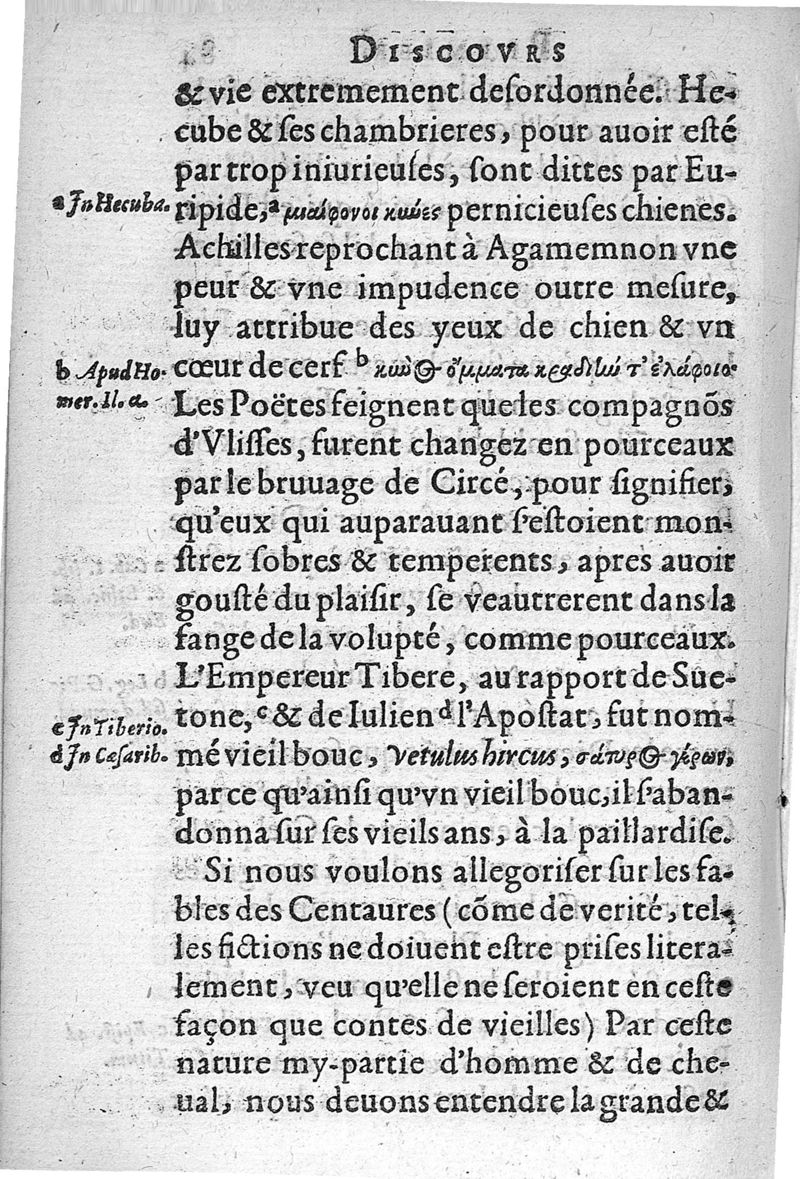 DISCOVRS
& vie extremement deſordonnée. He-
cube & ſes chambrieres, pour auoir eſté
par trop iniurieuſes, ſont dittes par Eu-
a In Hecuba.
ripide,ᵃ μιαίφονοι κύνες pernicieuſes chienes.
Achilles reprochant à Agamemnon vne
peur & vne impudence outre meſure,
luy attribue des yeux de chien & vn
b Apud Ho-
mer. Il. α.
cœur de cerf ᵇ κυνὸς ὄμματα κραδίην τ' ἐλάφοιο.
Les Poëtes feignent que les compagnõs
d'Vliſſes, furent changez en pourceaux
par le bruuage de Circé, pour ſignifier,
qu'eux qui auparauant s'eſtoient mon-
ſtrez ſobres & temperents, apres auoir
gouſté du plaiſir, ſe veautrerent dans la
fange de la volupté, comme pourceaux.
L'Empereur Tibere, au rapport de Sue-
c In Tiberio.
d In Cæſarib.
tone,ᶜ & de Iulien ᵈ l'Apoſtat, fut nom-
mé vieil bouc, Vetulus hircus, σάτυρος γέρων,
par ce qu'ainſi qu'vn vieil bouc, il s'aban-
donna ſur ſes vieils ans, à la paillardiſe.
Si nous voulons allegoriſer ſur les fa-
bles des Centaures (cõme de verité, tel-
les fictions ne doiuent eſtre priſes litera-
lement, veu qu'elle ne ſeroient en ceſte
façon que contes de vieilles) Par ceſte
nature my-partie d'homme & de che-
ual, nous deuons entendre la grande &